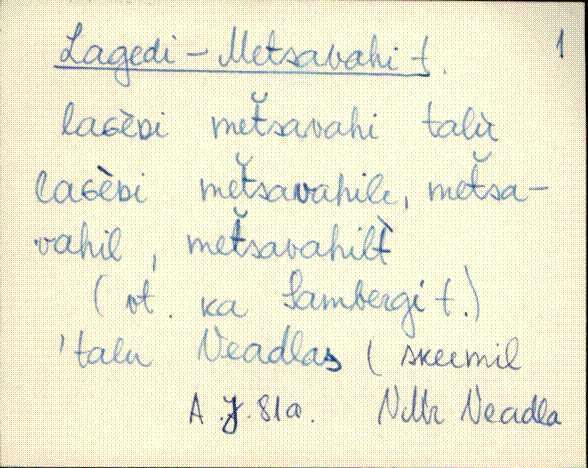 1
Lagedi - Metsavahi t.
laɢèᴅi met̆savahi talù
laɢèᴅi met̆savahile, met̆sa-
vahil, met̆savahilt̀
(vt. ka Sambergi t.)
'talu Neadlas (
A. J. 81a. Neadla